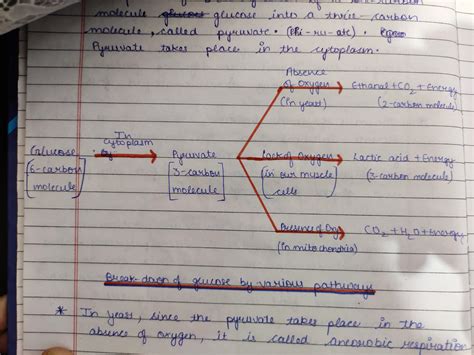 molecule glucose into a three-carbon
molecule, called pyruvate.
Pyruvate takes place in the cytoplasm.
Absence
of Oxygen
(In yeast)
Ethanol + CO2 + Energy
(2-carbon molecule)
In
cytoplasm
Glucose
[6-carbon
molecule]
Pyruvate
[3-carbon
molecule]
Lack of Oxygen
(in our muscle
cells
Lactic acid + Energy
(3-carbon molecule)
Presence of Oxy
(in mitochondria)
CO2 + H2O + Energy
Break-down of glucose by various pathways
* In yeast, since the pyruvate takes place in the
absence of oxygen, it is called anaerobic respiration